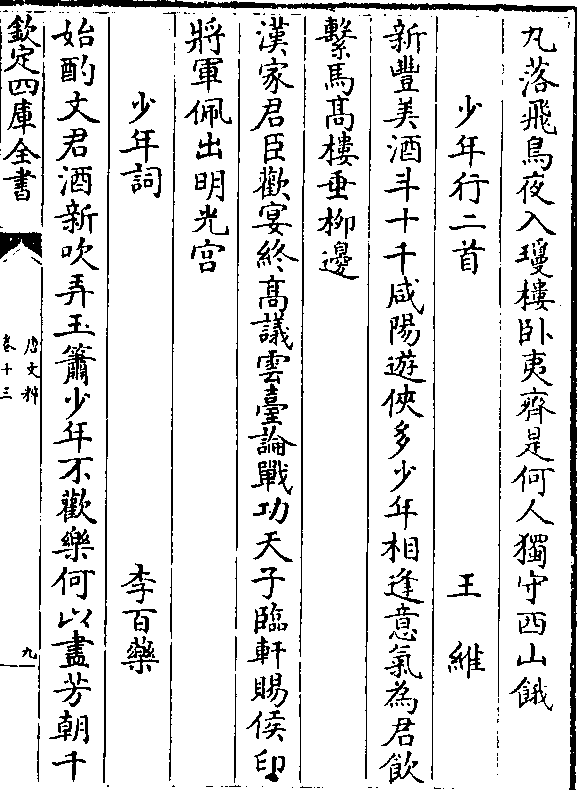 丸落飛鳥夜入瓊樓卧夷齊是何人獨守西山餓
少年行二首 王維
新豐美酒斗十千咸陽遊俠多少年相逢意氣為君飲
繫馬髙樓垂栁邊
漢家君臣歡宴終髙議雲臺論戰功天子臨軒賜侯印
將軍佩出明光宫
少年詞 李百藥
始酌文君酒新吹弄玉簫少年不歡樂何以盡芳朝千
欽定四庫全書
唐文粹
卷十三
九